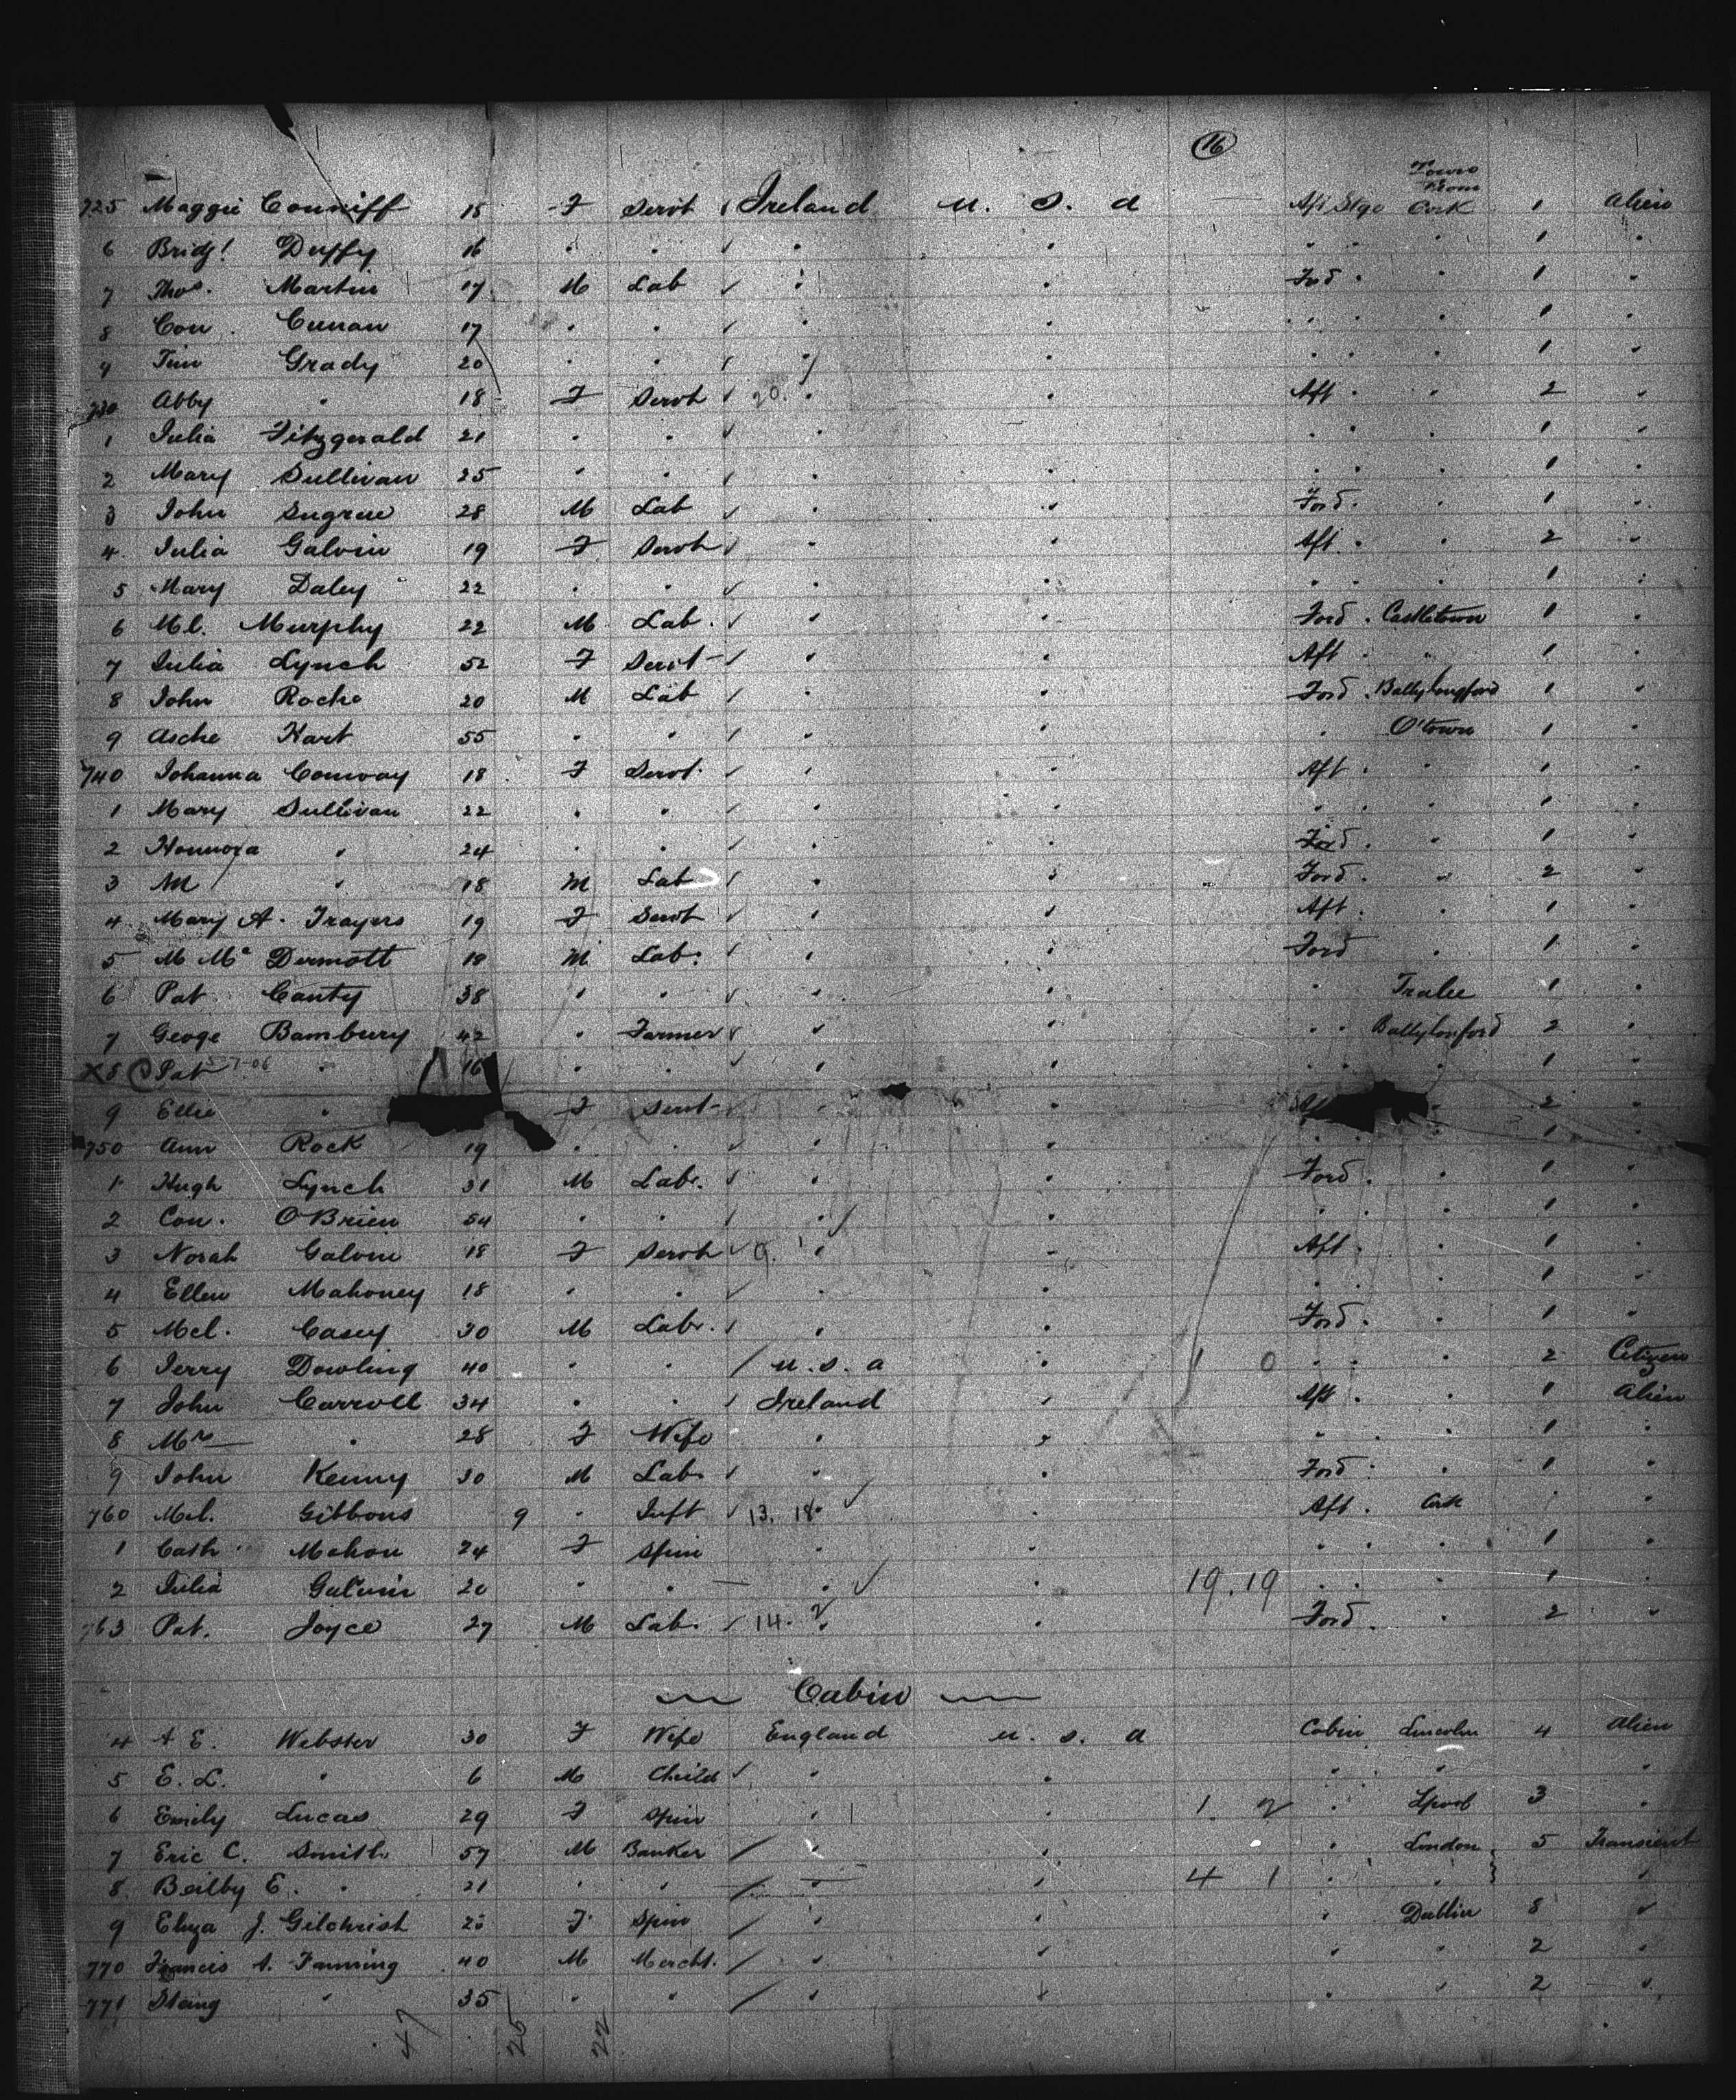 16
Town From
725 Maggie Conniff 18 F Servt Ireland U. S. A Aft Stge Cork 1 Alien
6 Bridgt Duffy 16 " " " " " " " 1 "
7 Thos. Martin 17 M Lab " " Ford " " 1 "
8 Con. Cunan 17 " " " " " " " 1 "
9 Tim Grady 20 " " " " " " " 1 "
730 Abby " 18 F Servt 20. " " Aft " " 2 "
1 Julia Fitzgerald 21 " " " " " " " 1 "
2 Mary Sullivan 25 " " " " " " " 1 "
3 John Sugrue 28 M Lab " " Ford " " 1 "
4 Julia Galvin 19 F Servt " " Aft " " 2 "
5 Mary Daley 22 " " " " " " " 1 "
6 Ml. Murphy 22 M Lab. " " Ford " Castletown 1 "
7 Julia Lynch 52 F Servt " " Aft " " 1 "
8 John Roche 20 M Lab " " Ford " Ballylongford 1 "
9 Asche Hart 55 " " " " " Q'town 1 "
740 Johanna Conway 18 F Servt " " Aft " " 1 "
1 Mary Sullivan 22 " " " " " " " 1 "
2 Honnora " 24 " " " " Ford " " 1 "
3 M " 18 M Lab " " Ford " " 2 "
4 Mary A. Trayers 19 F Servt " " Aft " " 1 "
5 M Mc Dermott 18 M Lab. " " Ford " 1 "
6 Pat Canty 38 " " " " " Tralee 1 "
7 Geoge Bambury 42 " Farmer " " " " Ballylonford 2 "
X8 Pat 5-7-06 " 16 " " " " " " " 1 "
9 Ellie " F Servt " " " 2 "
750 Ann Rock 19 " " " " " " 1 "
1 Hugh Lynch 31 M Labr. " " Ford " " 1 "
2 Con. O'Brien 54 " " " " " " " 1 "
3 Norah Galvin 18 F Servt 9. " " Aft " " 1 "
4 Ellen Mahoney 18 " " " " " " " 1 "
5 Mcl. Casey 30 M Labr. " " Ford " " 1 "
6 Jerry Dowling 40 " " U. S. A " 1 0 " " " 2 Citizen
7 John Carroll 34 " " Ireland " Aft " " 1 Alien
8 Mrs " 28 F Wife " " " " " 1 "
9 John Kenny 30 M Labr " " Ford " " 1 "
760 Mcl. Gibbons 9 " Inft 13. 18 " " Aft " Cork 1 "
1 Cath Mahon 24 F Spin " " " " " 1 "
2 Julia Galvin 20 " " " " 19.19 " " " 1 "
763 Pat. Joyce 27 M Lab. 14. 2 " " Ford " " 2 "
Cabin
4 A E. Webster 30 F Wife England U. S. A Cabin Lincoln 4 Alien
5 E. L. " 6 M Child " " " " "
6 Emily Lucas 29 F Spin " " 1 2 " Lpool 3 "
7 Eric C. Smith 57 M Banker " " " London 5 Transient
8 Beilby E. " 21 " " " " 4 1 " " "
9 Eliza J. Gilchrist 25 F Spin " " " Dublin 8 "
770 Francis A. Fanning 40 M Mercht. " " " " 2 "
771 " 35 " " " " " " 2 "
47 25 22